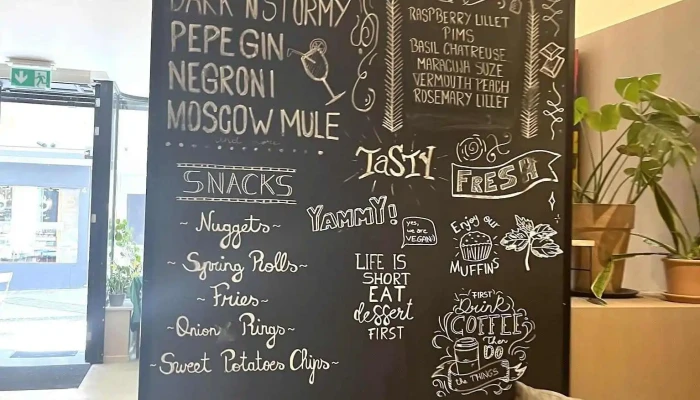 DARK 'N STORMY
PEPE GIN
NEGRONI
MOSCOW MULE
and more
RASPBERRY LILLET
PIMS
BASIL CHATREUSE
MARACUNA SUZE
VERMOUTH PEACH
ROSEMARY LILLET
SNACKS
~ Nuggets ~
~ Spring Rolls ~
~ Fries ~
~ Onion Rings ~
~ Sweet Potatoes Chips ~
TaSTY
FRESH
YAMMY!
yes,
we are
VEGAN!
Enjoy our
MUFFINS
LIFE IS
SHORT
EAT
dessert
FIRST
FIRST
Drink
COFFEE
Then
DO
the THINGS